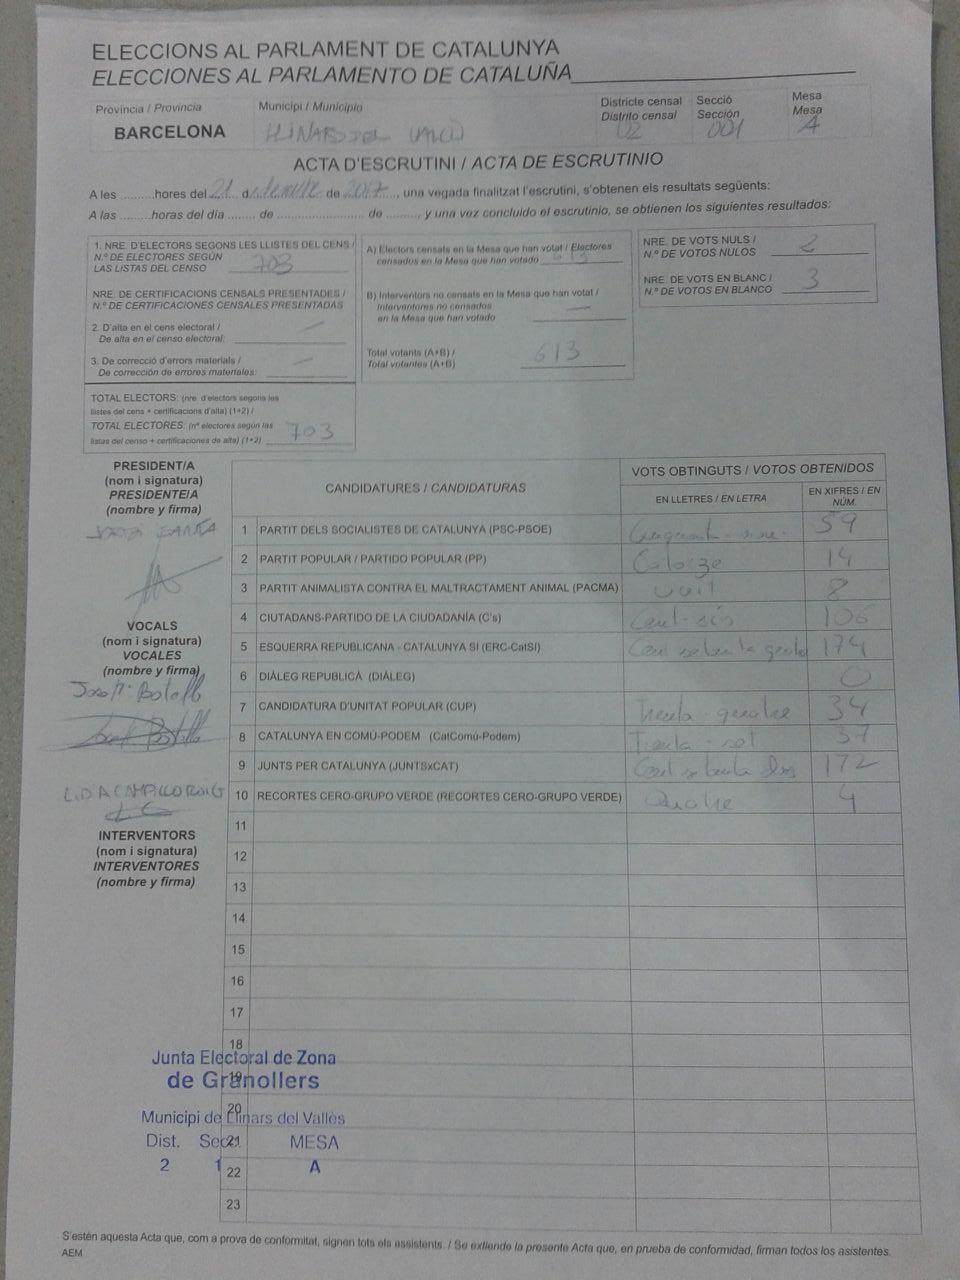 ELECCIONS AL PARLAMENT DE CATALUNYA
ELECCIONES AL PARLAMENTO DE CATALUÑA
Província / Provincia
Municipi / Municipio
Districte censal
Distrito censal
Secció
Sección
Mesa
Mesa
BARCELONA
LLINARS DEL VALLÈS
02
001
A
ACTA D'ESCRUTINI / ACTA DE ESCRUTINIO
A les .........hores del 21 desembre de 2017, una vegada finalitzat l'escrutini, s'obtenen els resultats següents:
A las .........horas del día ........ de ......................... de ........., y una vez concluido el escrutinio, se obtienen los siguientes resultados:
1. NRE. D'ELECTORS SEGONS LES LLISTES DEL CENS /
N.º DE ELECTORES SEGÚN
LAS LISTAS DEL CENSO 703
NRE. DE CERTIFICACIONS CENSALS PRESENTADES /
N.º DE CERTIFICACIONES CENSALES PRESENTADAS
2. D'alta en el cens electoral /
De alta en el censo electoral: —
3. De correcció d'errors materials /
De corrección de errores materiales: —
TOTAL ELECTORS: (nre. d'electors segons les
llistes del cens + certificacions d'alta) (1+2) /
TOTAL ELECTORES: (nº electores según las
listas del censo + certificaciones de alta) (1+2) 703
A) Electors censats en la Mesa que han votat / Electores
censados en la Mesa que han votado 613
B) Interventors no censats en la Mesa que han votat /
Interventores no censados
en la Mesa que han votado —
Total votants (A+B) /
Total votantes (A+B) 613
NRE. DE VOTS NULS /
N.º DE VOTOS NULOS 2
NRE. DE VOTS EN BLANC /
N.º DE VOTOS EN BLANCO 3
PRESIDENT/A
(nom i signatura)
PRESIDENTE/A
(nombre y firma)
VOCALS
(nom i signatura)
VOCALES
(nombre y firma)
INTERVENTORS
(nom i signatura)
INTERVENTORES
(nombre y firma)
CANDIDATURES / CANDIDATURAS
VOTS OBTINGUTS / VOTOS OBTENIDOS
EN LLETRES / EN LETRA
EN XIFRES / EN NÚM.
1 PARTIT DELS SOCIALISTES DE CATALUNYA (PSC-PSOE) Cinquanta-nou 59
2 PARTIT POPULAR / PARTIDO POPULAR (PP) Catorze 14
3 PARTIT ANIMALISTA CONTRA EL MALTRACTAMENT ANIMAL (PACMA) vuit 8
4 CIUTADANS-PARTIDO DE LA CIUDADANÍA (C's) Cent-sis 106
5 ESQUERRA REPUBLICANA - CATALUNYA SI (ERC-CatSI) Cent setanta quatre 174
6 DIÀLEG REPUBLICÀ (DIÀLEG) 0
7 CANDIDATURA D'UNITAT POPULAR (CUP) Trenta-quatre 34
8 CATALUNYA EN COMÚ-PODEM (CatComú-Podem) Trenta-set 37
9 JUNTS PER CATALUNYA (JUNTSxCAT) Cent setanta dos 172
10 RECORTES CERO-GRUPO VERDE (RECORTES CERO-GRUPO VERDE) Quatre 4
11
12
13
14
15
16
17
18
19
20
21
22
23
Junta Electoral de Zona
de Granollers
Municipi de Llinars del Vallès
Dist. Secc. MESA
2 1 A
S'estén aquesta Acta que, com a prova de conformitat, signen tots els assistents. / Se extiende la presente Acta que, en prueba de conformidad, firman todos los asistentes.
AEM